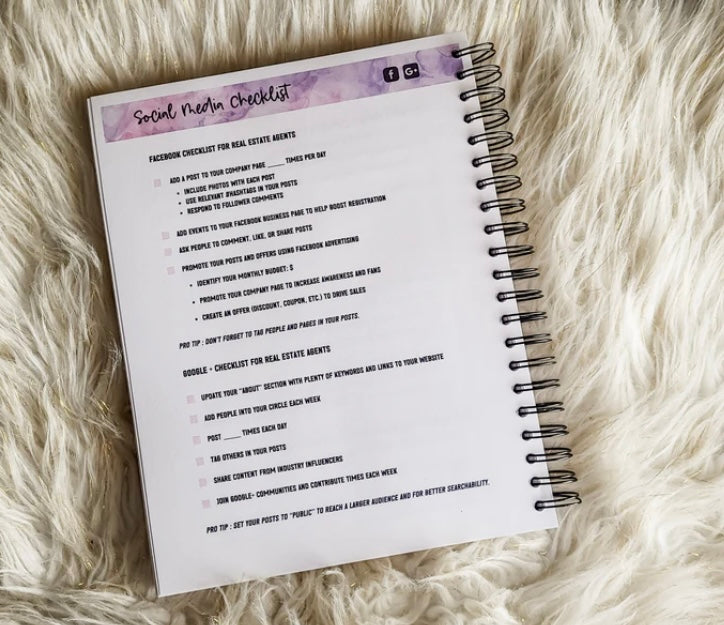 Social Media Checklist
f G+
FACEBOOK CHECKLIST FOR REAL ESTATE AGENTS
ADD A POST TO YOUR COMPANY PAGE _____ TIMES PER DAY
• INCLUDE PHOTOS WITH EACH POST
• USE RELEVANT #HASHTAGS IN YOUR POSTS
• RESPOND TO FOLLOWER COMMENTS
ADD EVENTS TO YOUR FACEBOOK BUSINESS PAGE TO HELP BOOST REGISTRATION
ASK PEOPLE TO COMMENT, LIKE, OR SHARE POSTS
PROMOTE YOUR POSTS AND OFFERS USING FACEBOOK ADVERTISING
• IDENTIFY YOUR MONTHLY BUDGET: $
• PROMOTE YOUR COMPANY PAGE TO INCREASE AWARENESS AND FANS
• CREATE AN OFFER (DISCOUNT, COUPON, ETC.) TO DRIVE SALES
PRO TIP : DON'T FORGET TO TAG PEOPLE AND PAGES IN YOUR POSTS.
GOOGLE + CHECKLIST FOR REAL ESTATE AGENTS
UPDATE YOUR "ABOUT" SECTION WITH PLENTY OF KEYWORDS AND LINKS TO YOUR WEBSITE
ADD PEOPLE INTO YOUR CIRCLE EACH WEEK
POST _____ TIMES EACH DAY
TAG OTHERS IN YOUR POSTS
SHARE CONTENT FROM INDUSTRY INFLUENCERS
JOIN GOOGLE+ COMMUNITIES AND CONTRIBUTE TIMES EACH WEEK
PRO TIP : SET YOUR POSTS TO "PUBLIC" TO REACH A LARGER AUDIENCE AND FOR BETTER SEARCHABILITY.